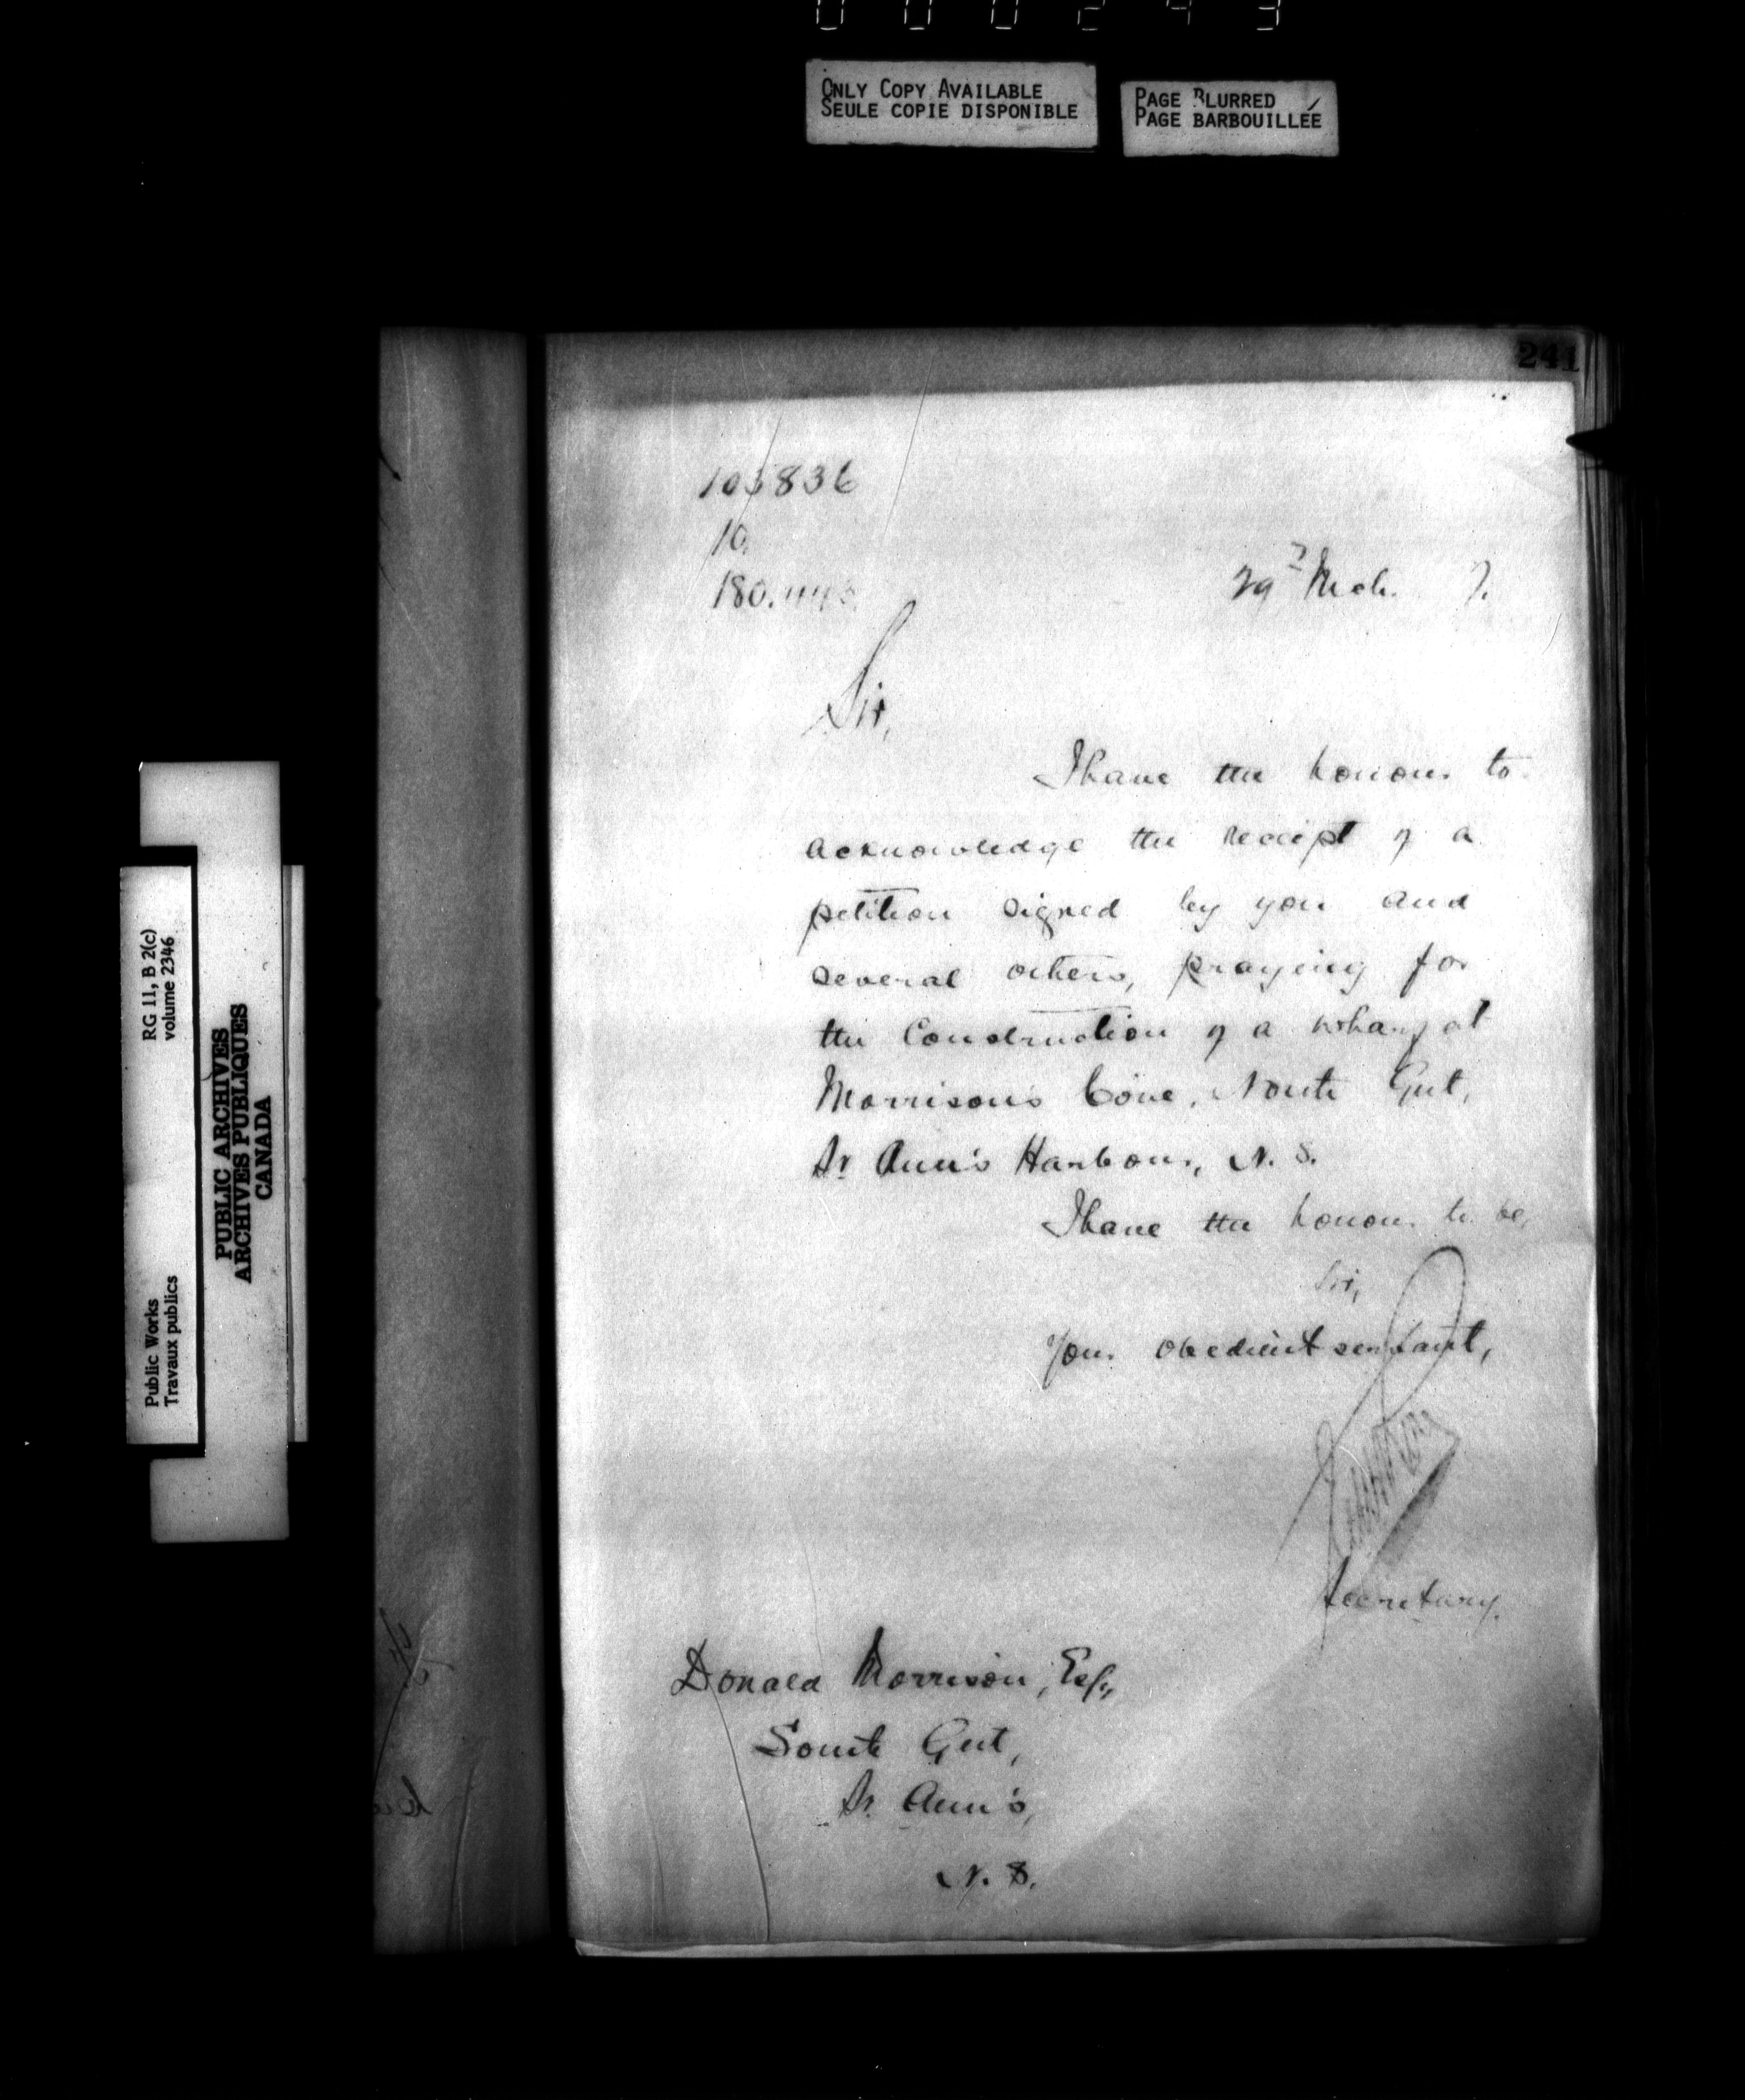 000243
ONLY COPY AVAILABLE
SEULE COPIE DISPONIBLE
PAGE BLURRED
PAGE BARBOUILLÉE
241
103836
10.
180.
29th Mch. 7.
Sir,
I have the honour to
acknowledge the receipt of a
petition signed by you and
several others, praying for
the Construction of a wharf at
Morrison's Cove, North Gut,
St Ann's Harbour, N. S.
I have the honour to be,
Sir,
Your obedient servant,
Secretary.
Donald Morrison, Esq.,
South Gut,
St. Ann's,
N. S.
RG 11, B 2(c)
volume 2346
Public Works
Travaux publics
PUBLIC ARCHIVES
ARCHIVES PUBLIQUES
CANADA